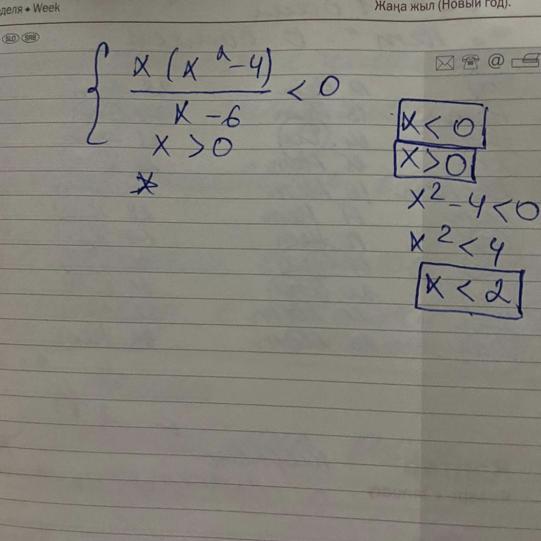 деля • Week
Жаңа жыл (Новый год).
SLO SRB
x (x² - 4)
x - 6
< 0
x > 0
x
x < 0
x > 0
x² - 4 < 0
x² < 4
x < 2